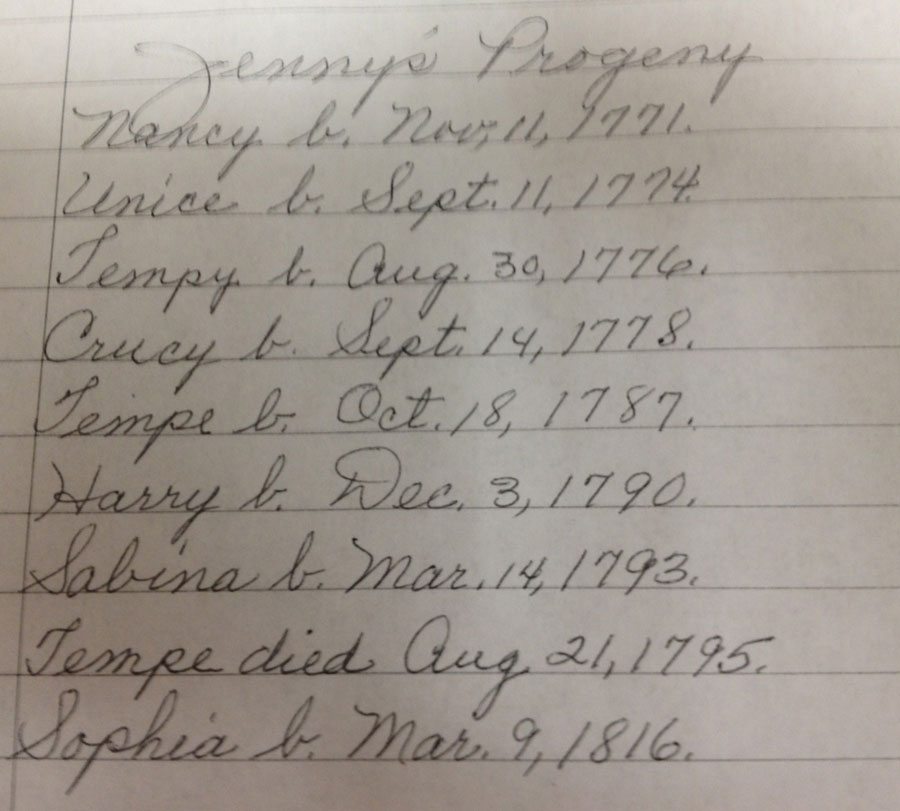 Jenny's Progeny
Nancy b. Nov. 11, 1771.
Unice b. Sept. 11, 1774.
Tempy b. Aug. 30, 1776.
Crucy b. Sept. 14, 1778.
Tempe b. Oct. 18, 1787.
Harry b. Dec. 3, 1790.
Sabina b. Mar. 14, 1793.
Tempe died Aug 21, 1795.
Sophia b. Mar. 9, 1816.